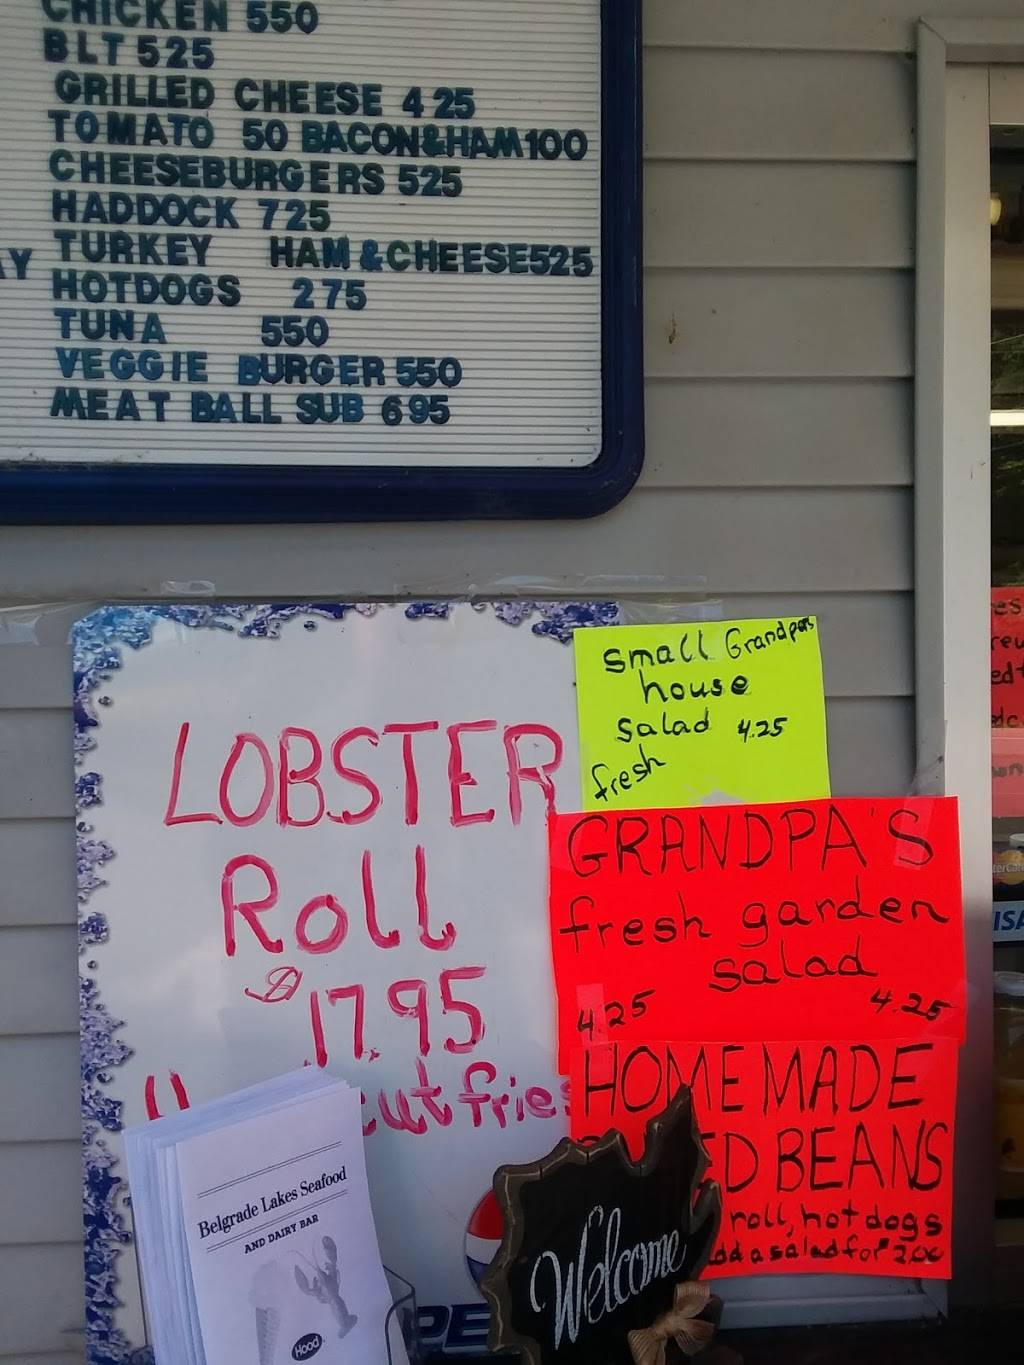 CHICKEN 550
BLT 525
GRILLED CHEESE 4 25
TOMATO 50 BACON&HAM 100
CHEESEBURGERS 525
HADDOCK 725
AY TURKEY HAM & CHEESE 525
HOTDOGS 275
TUNA 550
VEGGIE BURGER 550
MEAT BALL SUB 695
LOBSTER
Roll
$17.95
cut fries
small Grandpa's
house
salad 4.25
fresh
GRANDPA'S
fresh garden
salad
4.25 4.25
HOMEMADE
BEANS
roll, hotdogs
add a salad for 2.00
Belgrade Lakes Seafood
AND DAIRY BAR
Hood
Welcome
PE